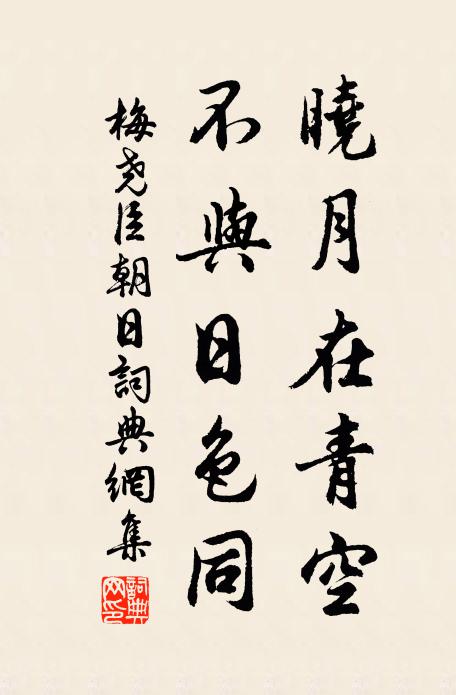 曉月在青空
不與日色同
梅尧臣朝日詞典網集
詞典
网印